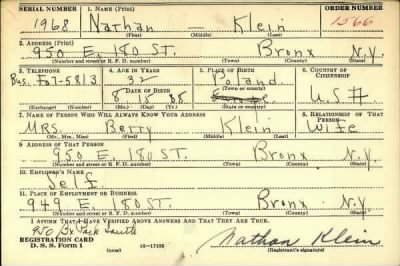 SERIAL NUMBER 1. NAME (Print) ORDER NUMBER
1968 Nathan — Klein 1566
(First) (Middle) (Last)
2. ADDRESS (Print)
950 E. 180 ST. Bronx N.Y.
(Number and street or R. F. D. number) (Town) (County) (State)
3. TELEPHONE 4. AGE IN YEARS 5. PLACE OF BIRTH 6. COUNTRY OF CITIZENSHIP
Bus. Fo7-5813 32 Poland
DATE OF BIRTH (Town or county)
8 88 U.S.A
(Exchange) (Number) (Mo.) (Day) (Yr.) (State or country)
7. NAME OF PERSON WHO WILL ALWAYS KNOW YOUR ADDRESS 8. RELATIONSHIP OF THAT PERSON
MRS. Berry Klein Wife
(Mr., Mrs., Miss) (First) (Middle) (Last)
9. ADDRESS OF THAT PERSON
950 E. 180 ST. Bronx N.Y.
(Number and street or R. F. D. number) (Town) (County) (State)
10. EMPLOYER'S NAME
Self
11. PLACE OF EMPLOYMENT OR BUSINESS
949 E. 180 ST. Bronx N.Y.
(Number and street or R. F. D. number) (Town) (County) (State)
I AFFIRM THAT I HAVE VERIFIED ABOVE ANSWERS AND THAT THEY ARE TRUE.
950 Bx Park South
REGISTRATION CARD 16—17105 Nathan Klein
D. S. S. Form 1 (over) (Registrant's signature)